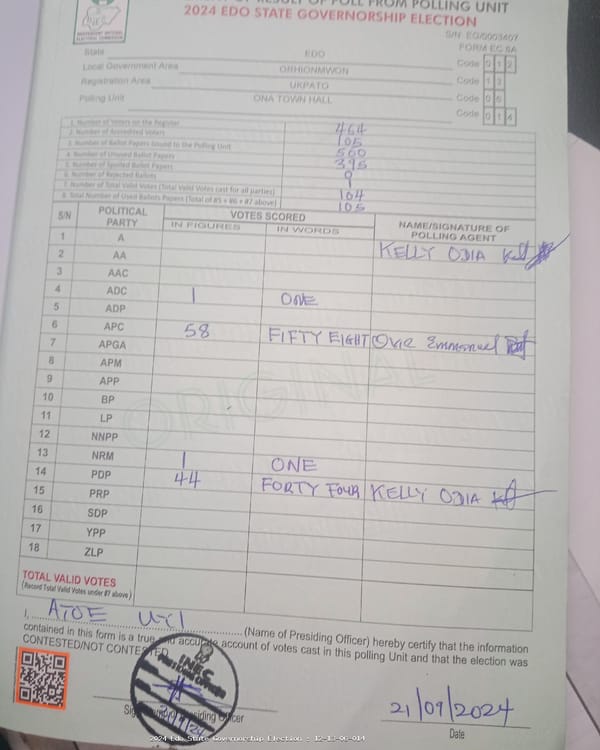 OF RESULT OF POLL FROM POLLING UNIT
2024 EDO STATE GOVERNORSHIP ELECTION
S/N: EG/0003407
FORM EC 8A
State EDO Code 0 1 2
Local Government Area ORHIONMWON Code 1 3
Registration Area UKPATO Code 0 6
Polling Unit ONA TOWN HALL Code 0 1 4
1. Number of Voters on the Register 464
2. Number of Accredited Voters 105
3. Number of Ballot Papers Issued to the Polling Unit 500
4. Number of Unused Ballot Papers 395
5. Number of Spoiled Ballot Papers 0
6. Number of Rejected Ballots 1
7. Number of Total Valid Votes (Total Valid Votes cast for all parties) 104
8. Total Number of Used Ballots Papers (Total of #5 + #6 + #7 above) 105
S/N POLITICAL PARTY VOTES SCORED NAME/SIGNATURE OF POLLING AGENT
IN FIGURES IN WORDS
1 A
2 AA KELLY ODIA
3 AAC
4 ADC 1 ONE
5 ADP
6 APC 58 FIFTY EIGHT Ovie Emmanuel
7 APGA
8 APM
9 APP
10 BP
11 LP
12 NNPP
13 NRM 1 ONE
14 PDP 44 FORTY FOUR KELLY ODIA
15 PRP
16 SDP
17 YPP
18 ZLP
ORIGINAL
TOTAL VALID VOTES
(Record Total Valid Votes under #7 above)
I, ATOE UYI (Name of Presiding Officer) hereby certify that the information
contained in this form is a true and accurate account of votes cast in this polling Unit and that the election was
CONTESTED/NOT CONTESTED
INEC
21/09/2024
Date
2024 Edo State Governorship Election : 12-13-06-014